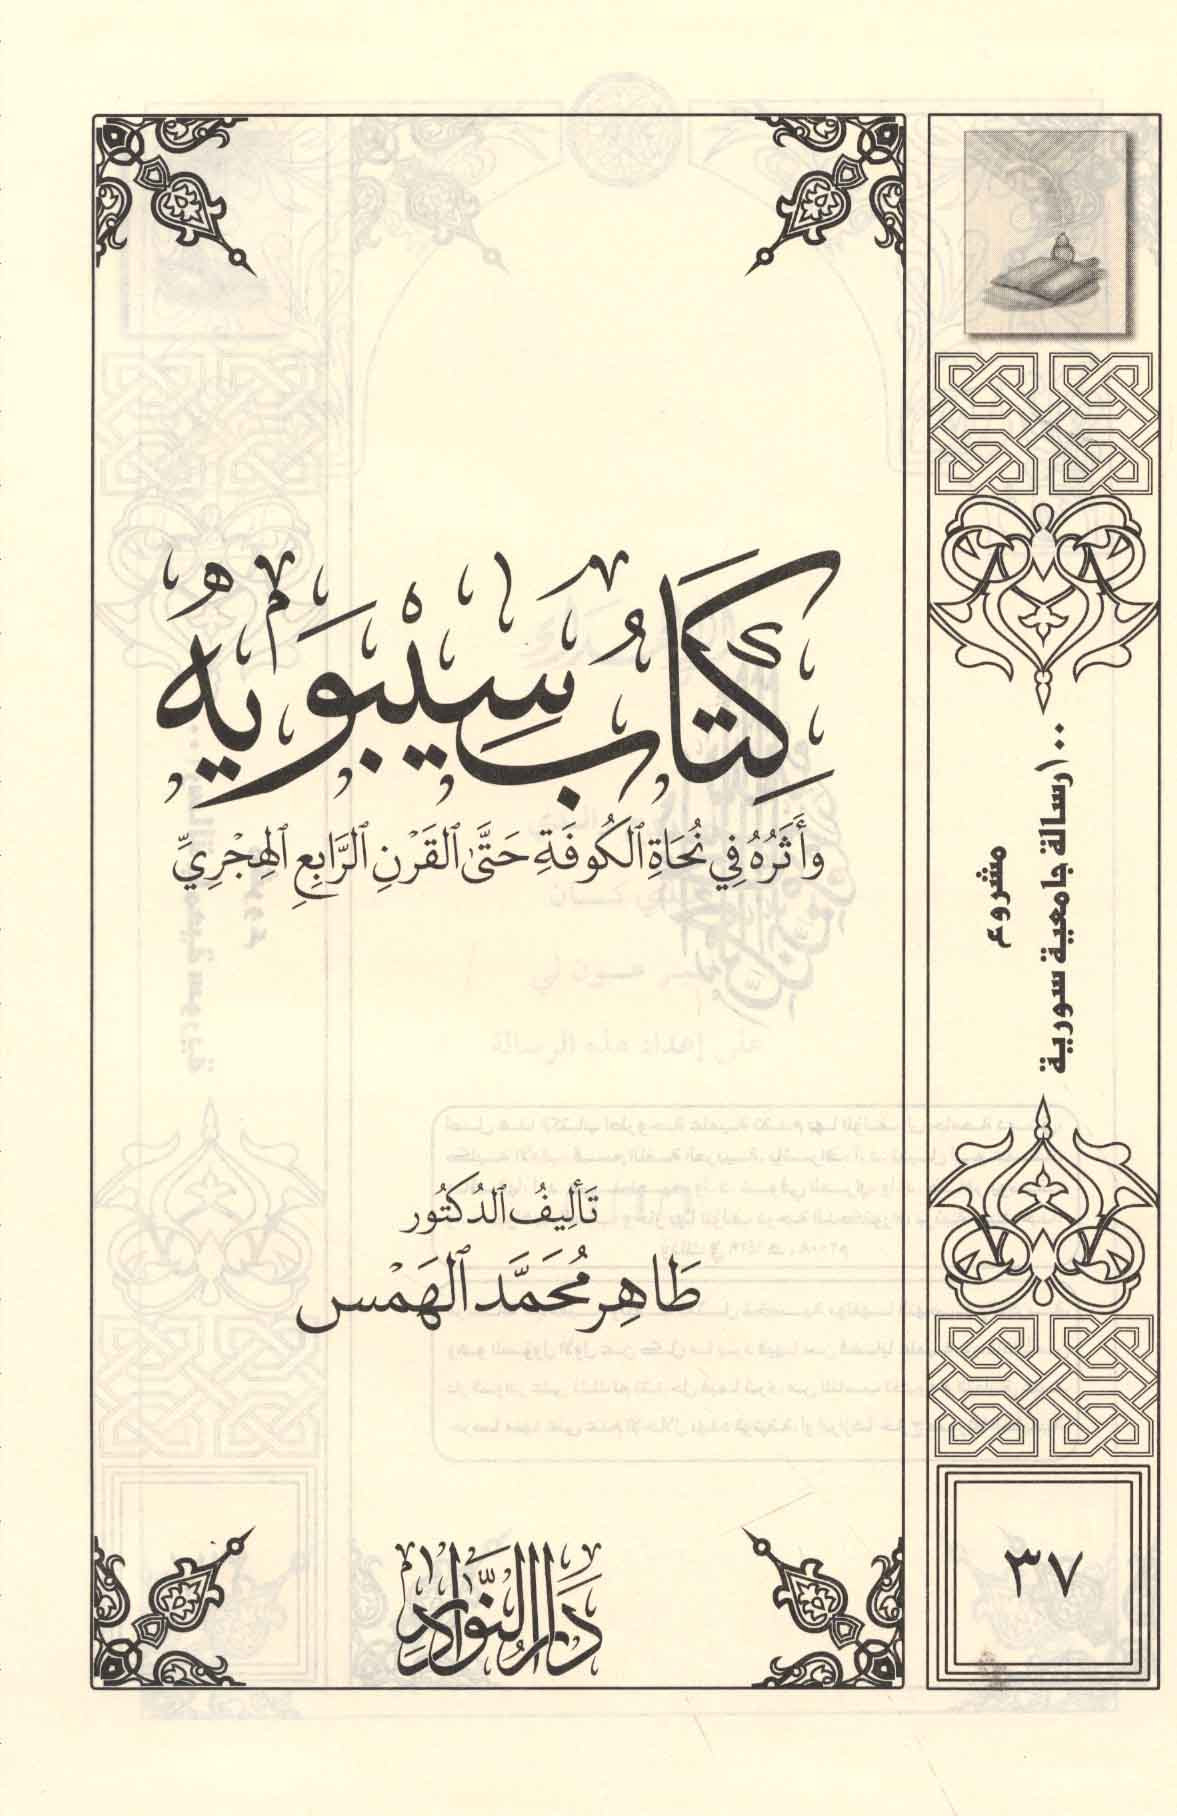 كِتَابُ سِيْبَوَيْهِ
وَأَثَرُهُ فِي نُحَاةِ ٱلكُوفَةِ حَتَّىٰ ٱلقَرْنِ ٱلرَّابِعِ ٱلهِجْرِيِّ
تَأْلِيفُ ٱلدُّكْتُور
طَاهِر مُحَمَّد ٱلهَمْس
دَارُ النَّوَادِرِ
مشروع
١٠٠ رسالة جامعية سورية
٣٧